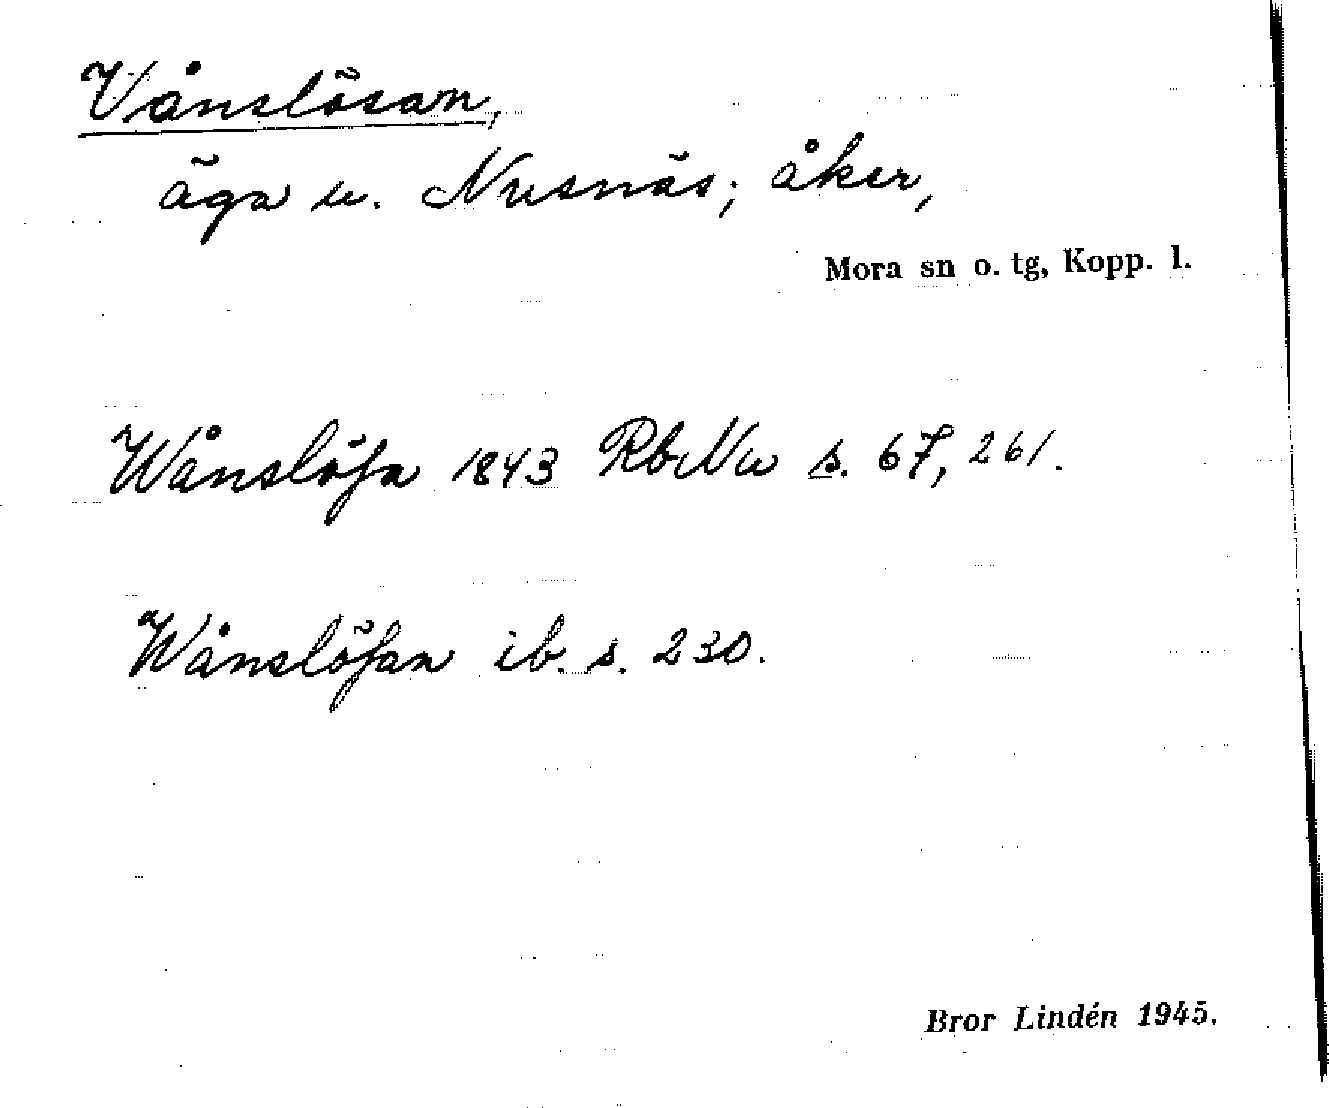 Vånslösan,
äga u. Nusnäs; åker,
Mora sn o. tg, Kopp. l.
Wånslösa 1843 RbNu s. 67, 261.
Wånslösan ib. s. 230.
Bror Lindén 1945.